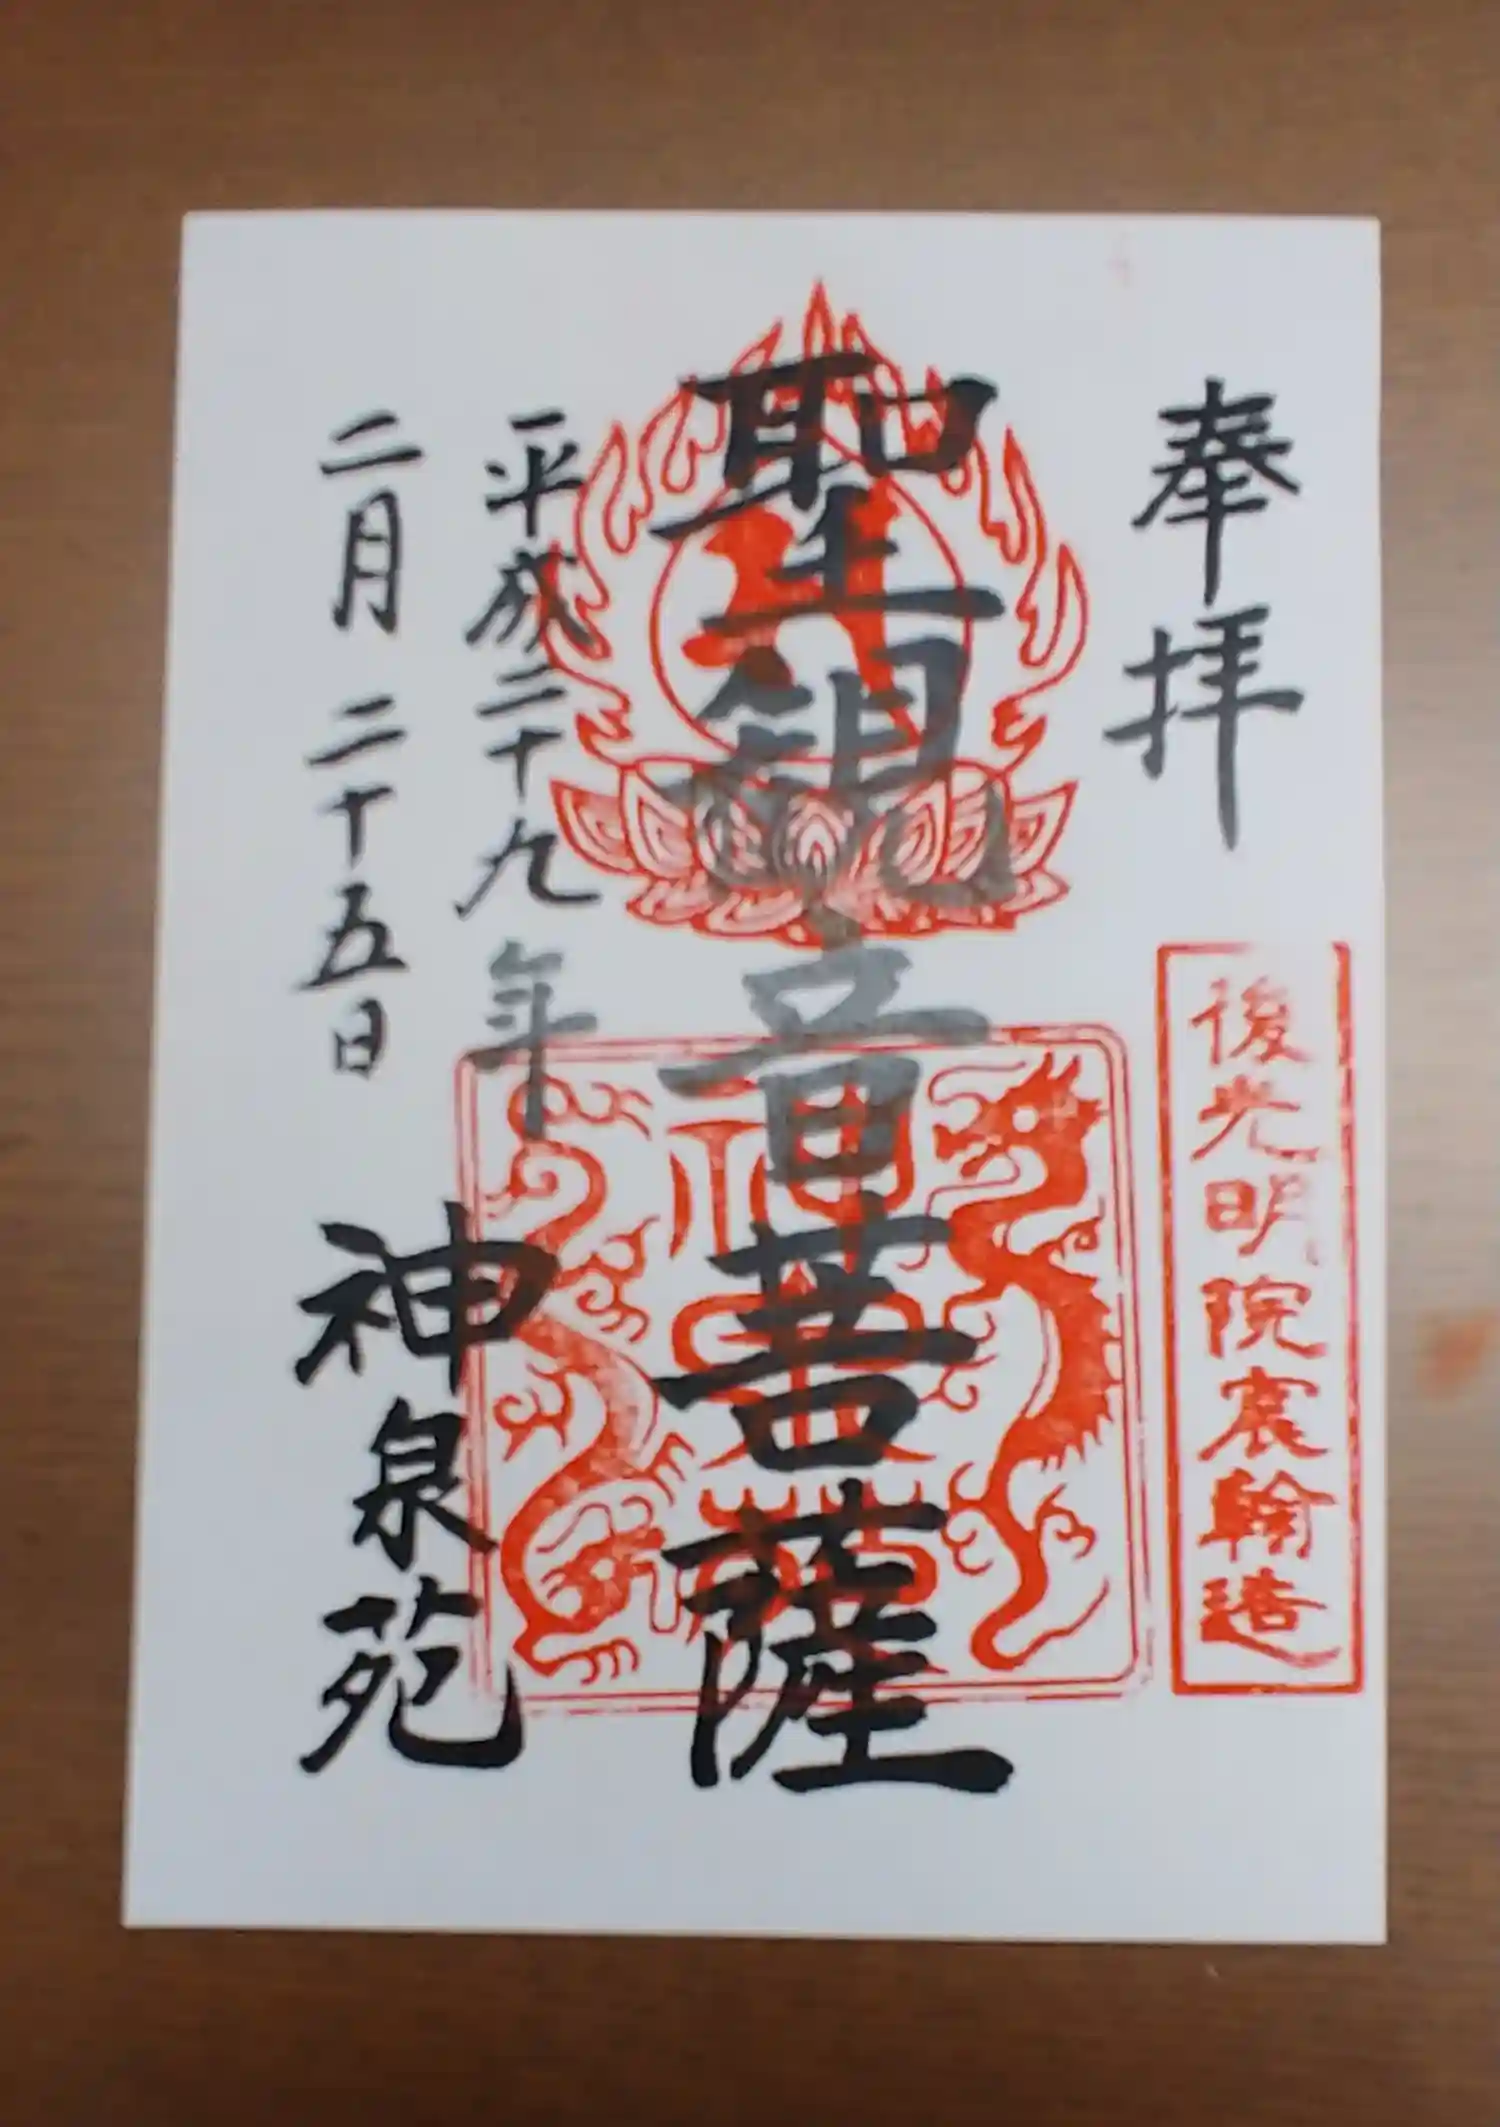 奉拝
後光明院宸翰
聖観音菩薩
平成二十九年
二月二十五日
神泉苑